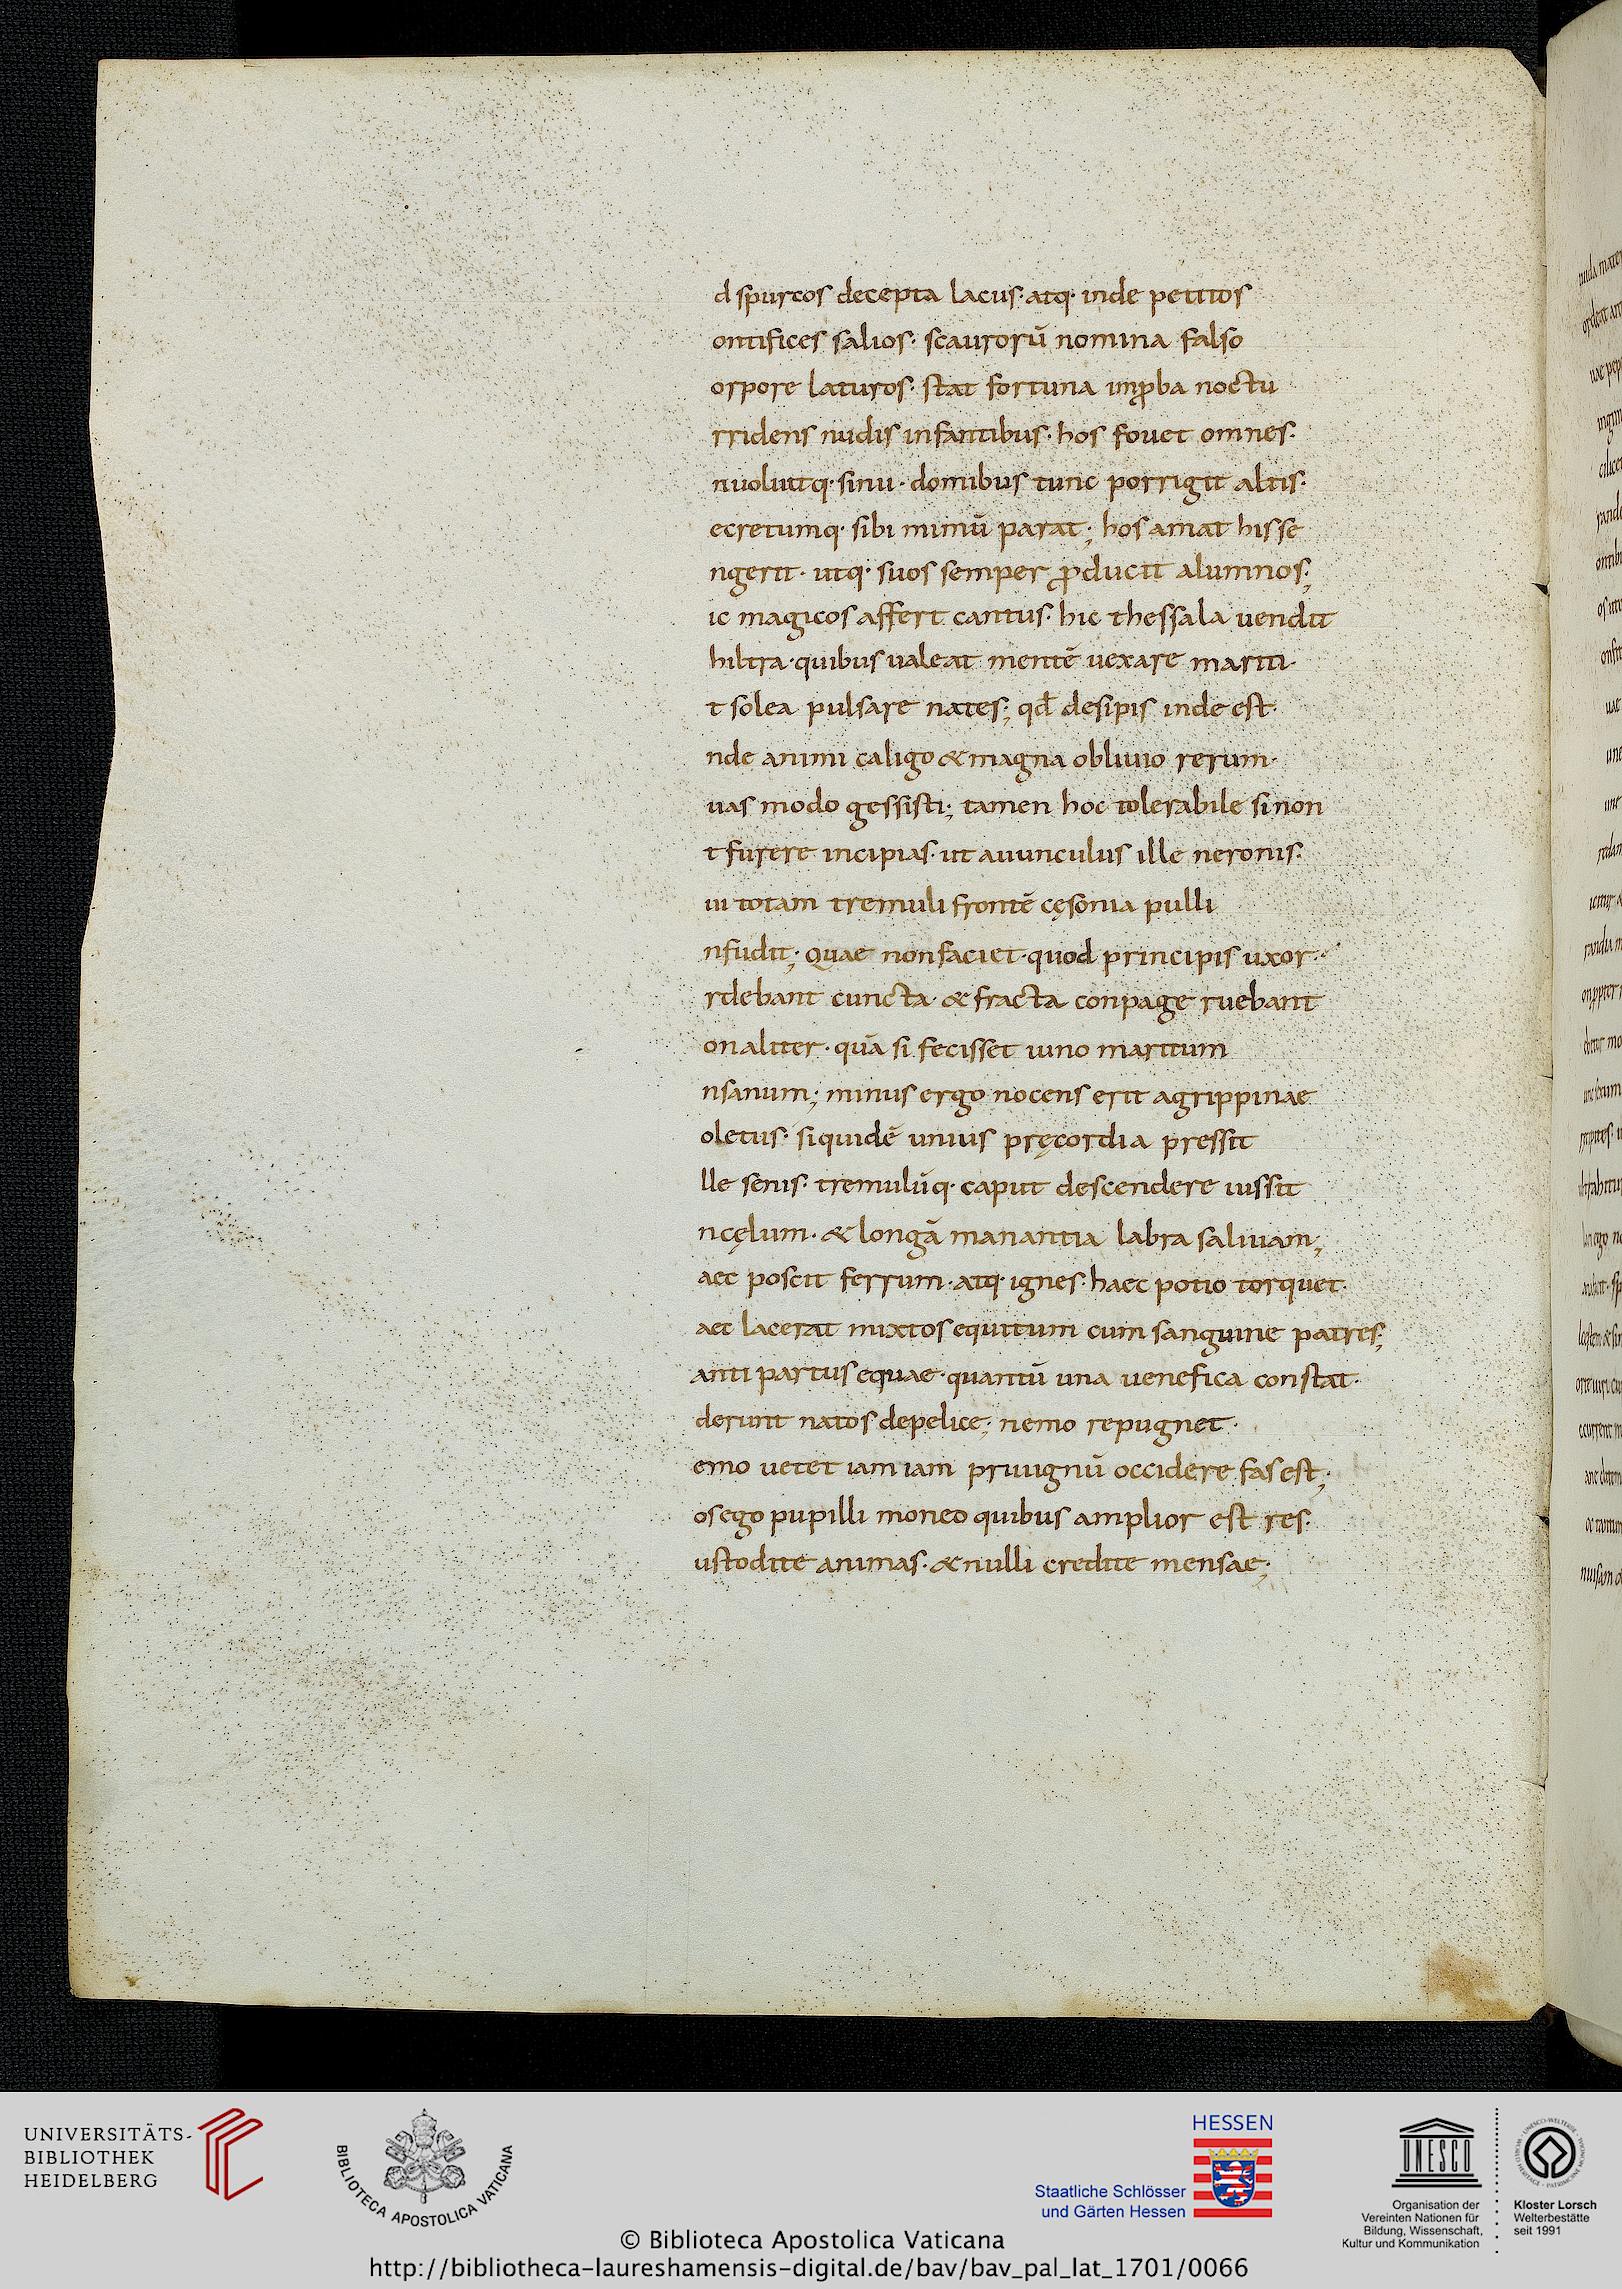 d spurcos decepta lacus· atq· inde petitos
ontifices salios· scaurorū nomina falso
orpore laturos· stat fortuna inꝓba noctu
rridens nudis infantibus· hos fouet omnes·
nuoluitq· sinu· domibus tunc porrigit altis·
ecretumq· sibi mimū parat; hos amat his se
ngerit· utq· suos semper ꝓducit alumnos;
ic magicos affert cantus· hic thessala uendit
hiltra· quibus ualeat mentē uexare mariti·
t solea pulsare nates; qđ desipis inde est·
nde animi caligo & magna obliuio rerum·
uas modo gessisti; tamen hoc tolerabile si non
t furere incipias· ut auunculus ille neronis·
ui totam tremuli frontē cęsonia pulli
nfudit; quae non faciet· quod principis uxor·
rdebant cuncta· & fracta conpage ruebant
on aliter· quā si fecisset iuno maritum
nsanum; minus ergo nocens erit agrippinae
oletus· siquidē unius pręcordia pressit
lle senis· tremulūq· caput descendere iussit
n cęlum· & longā manantia labra saliuam;
aec poscit ferrum· atq· ignes· haec potio torquet·
aec lacerat mixtos equitum cum sanguine patres;
anti partus equae· quantū una uenefica constat·
derunt natos de pelice; nemo repugnet·
emo uetet iam iam priuignū occidere fas est;
os ego pupilli moneo quibus amplior est res·
ustodite animas· & nulli credite mensae;
UNIVERSITÄTS-
BIBLIOTHEK
HEIDELBERG
BIBLIOTECA APOSTOLICA VATICANA
HESSEN
Staatliche Schlösser
und Gärten Hessen
UNESCO
Organisation der
Vereinten Nationen für
Bildung, Wissenschaft,
Kultur und Kommunikation
Kloster Lorsch
Welterbestätte
seit 1991
© Biblioteca Apostolica Vaticana
http://bibliotheca-laureshamensis-digital.de/bav/bav_pal_lat_1701/0066